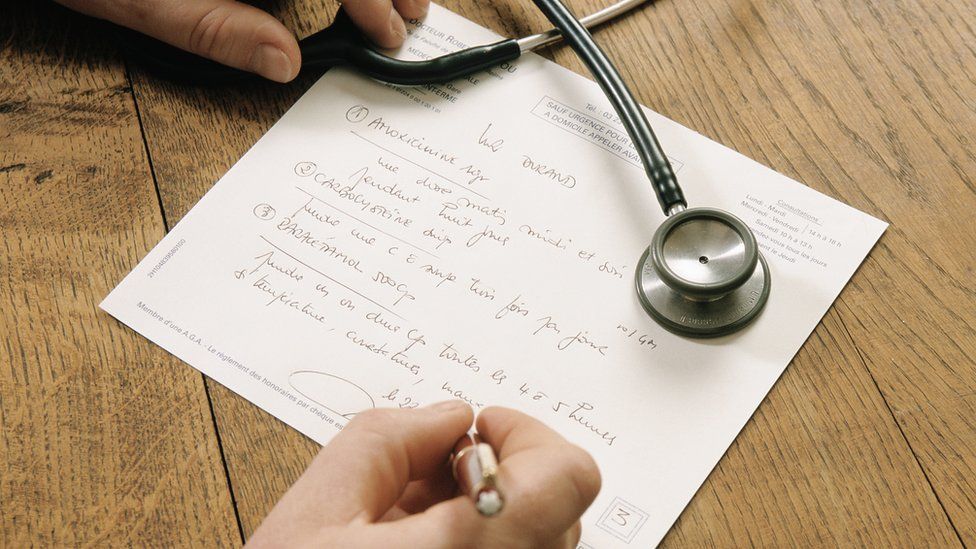 DOCTEUR ROBE
de la Faculté de
MÉDEC
INTERNE
Tel. 03 2
SAUF URGENCE POUR
A DOMICILE APPELER AVAN
Consultations
Lundi - Mardi
Mercredi - Vendredi 14 h à 18 h
Samedi 10 h à 13 h
rendez-vous tous les jours
le Jeudi
DURAND
① AMOXICILLINE
une dose matin, midi et soir
pendant huit jours
② CARBOCYSTEINE
prendre une c à soupe trois fois par jour
③ PARACETAMOL 500
prendre un ou deux cp toutes les 4 à 5 heures
si température, courbatures,
le 22
2H104839580100
Membre d'une A.G.A. Le règlement des honoraires par chèque est
3